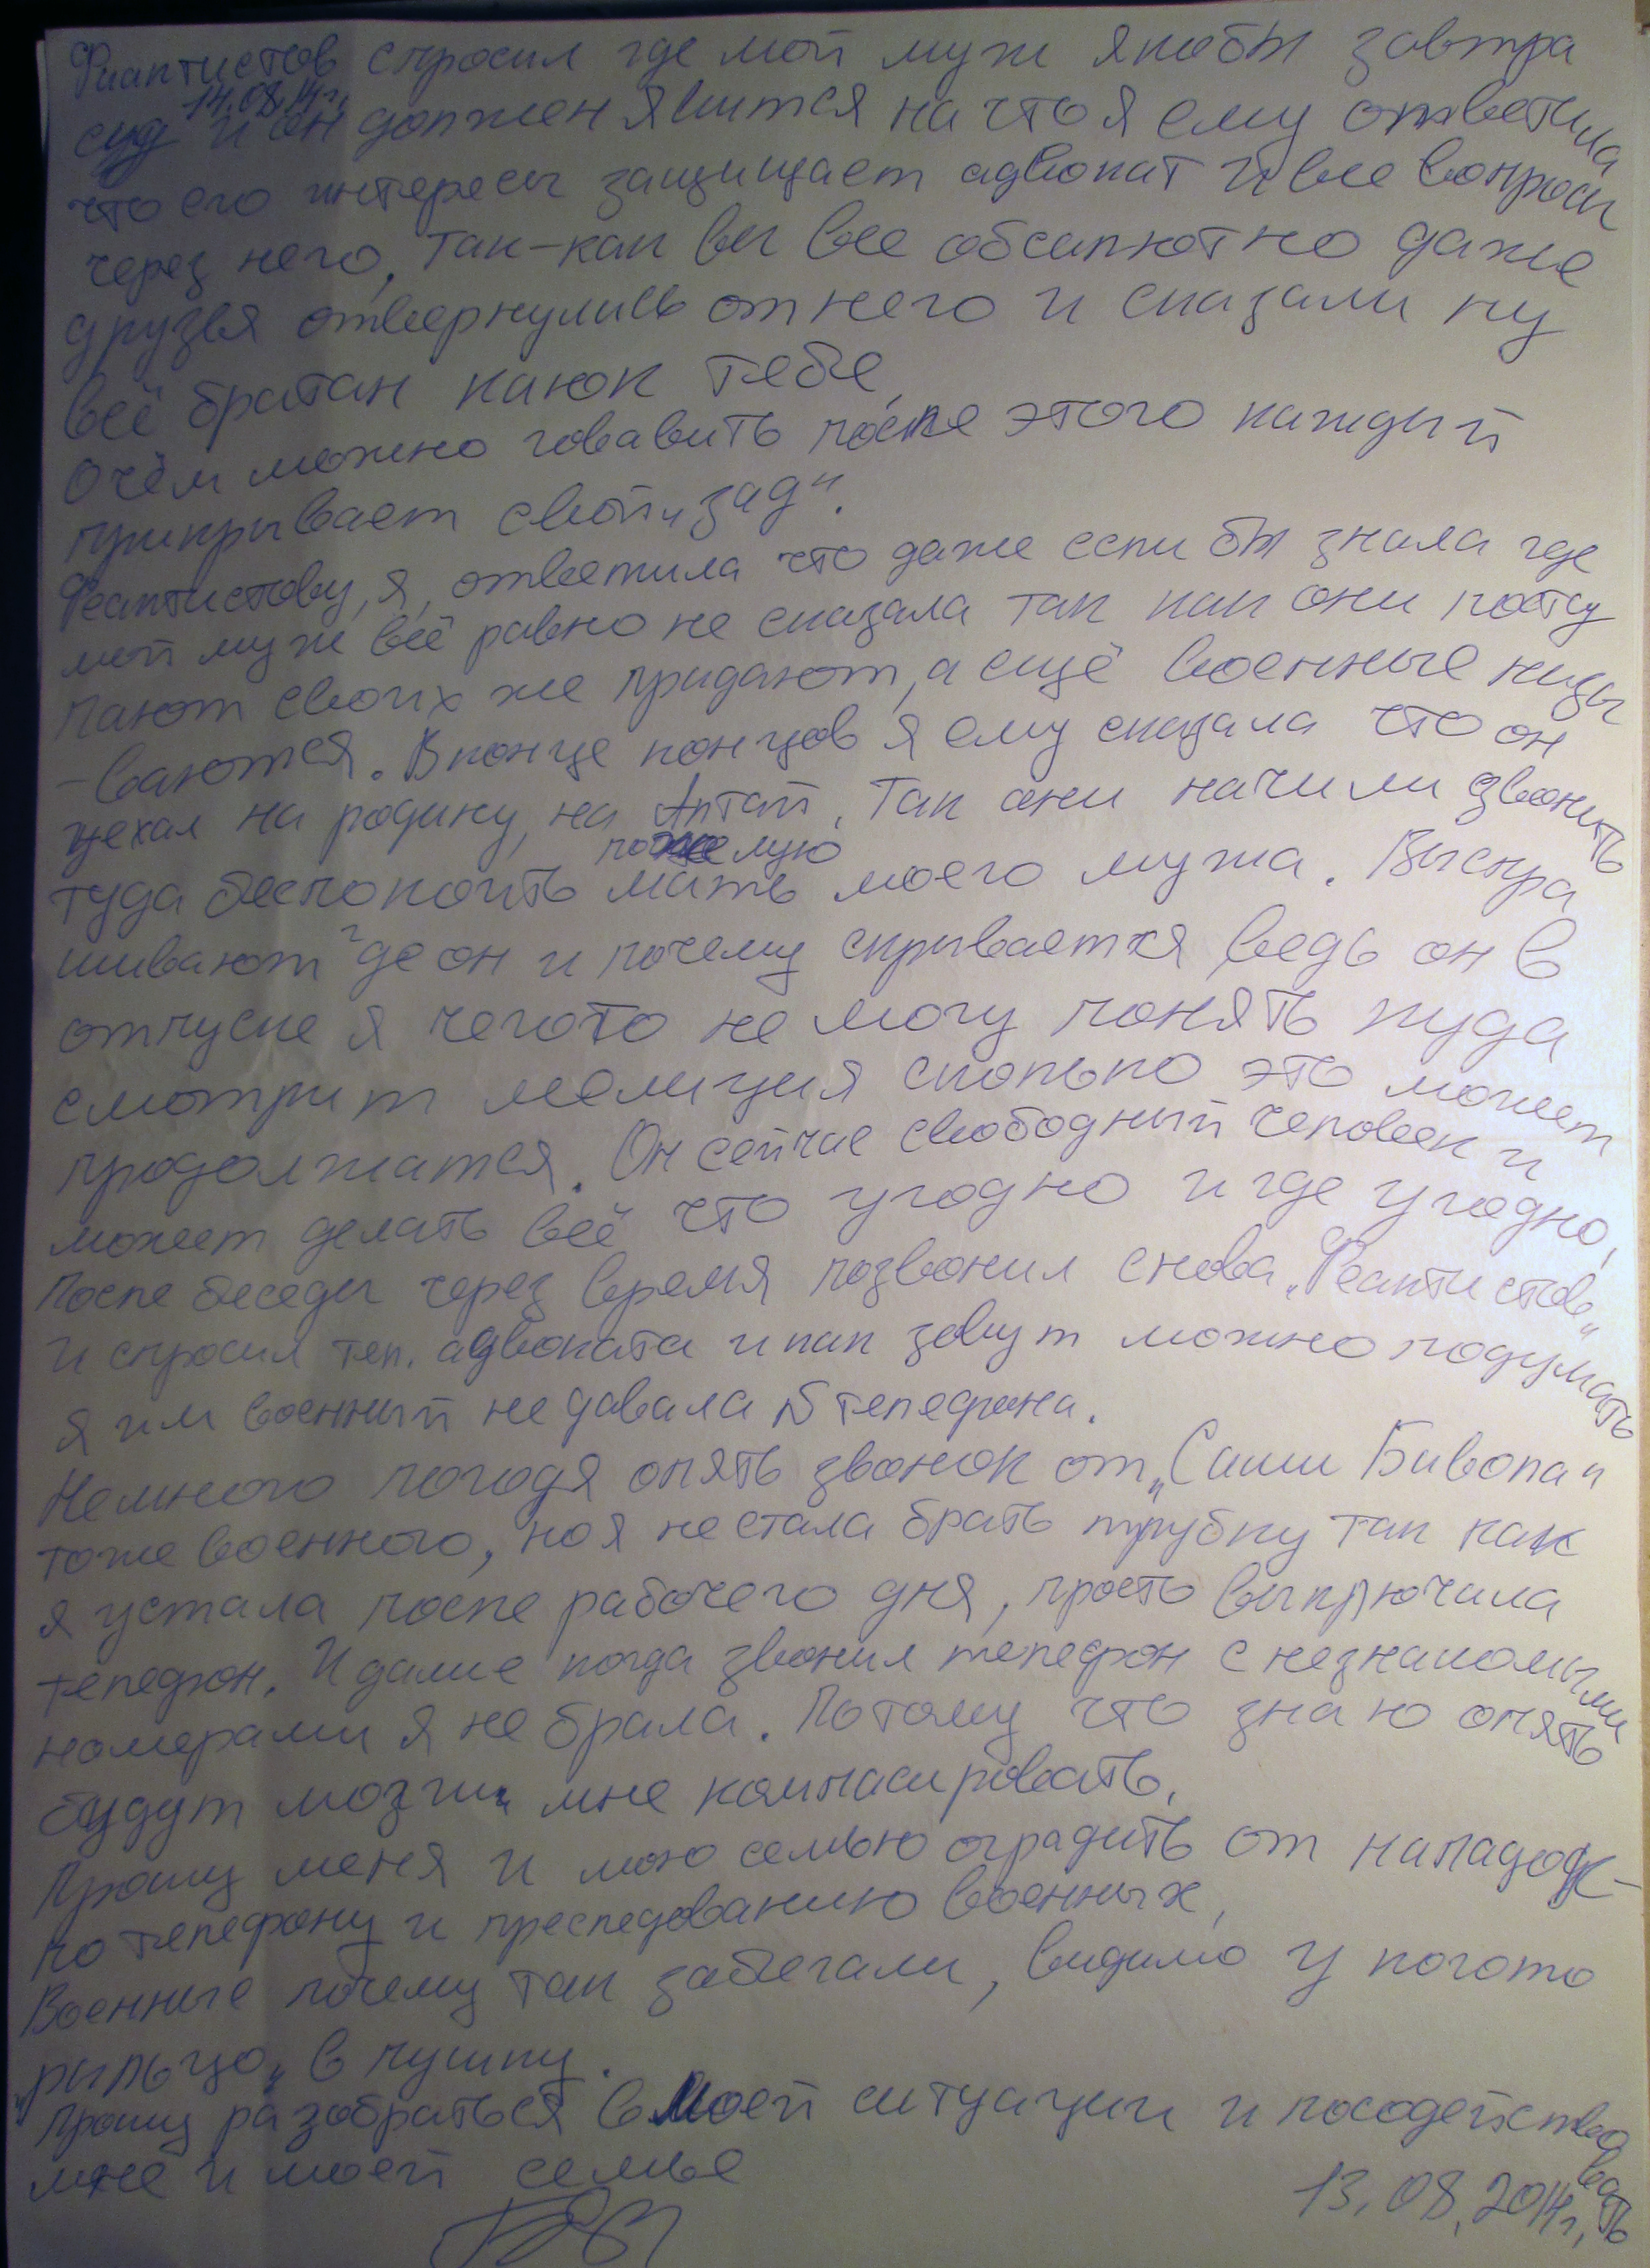 Фиаптистов спросил где мой муж якобы завтра
14.08.14г.
суд и он должен явится на что я ему ответила
что его интересы защищает адвокат и все вопросы
через него, так-как вы все обсалютно даже
друзья отвернулись от него и сказали ну
всё братан каюк тебе
О чём можно говавить после этого каждый
прикрывает свой „зад".
Феаптистову, я, ответила что даже если бы знала где
мой муж всё равно не сказала так как они посту
пают своих же придают, а ещё военные назы
-ваются. В конце концов я ему сказала что он
уехал на родину, на Алтай. Так они начили звонить
туда беспокоить пожелую мать моего мужа. Выспра
шивают где он и почему скрывается ведь он в
отпуске я чегото не могу понять куда
смотрит мелиция сколько это может
продолжатся. Он сейчас свободный человек и
может делать всё что угодно и где угодно,
После беседы через время позвонил снова „Феаптистов"
и спросил тел. адвоката и как зовут можно подумать
я им военный не давала № телефона.
Немного погодя опять звонок от „Саши Бивола"
тоже военного, но я не стала брать трубку так как
я устала после рабочего дня, просто выключила
телефон. И далие когда звонил телефон с незнакомыми
номерами я не брала. Потому что знаю опять
будут мозги мне компасировать.
Прошу меня и мою семью оградить от нападок-
по телефону и преследованию военных,
Военные почему так забегали, видимо у когото
„рыльцо" в пушку.
Прошу разобраться в моей ситуации и посодействовать
мне и моей семье
13.08.2014г.